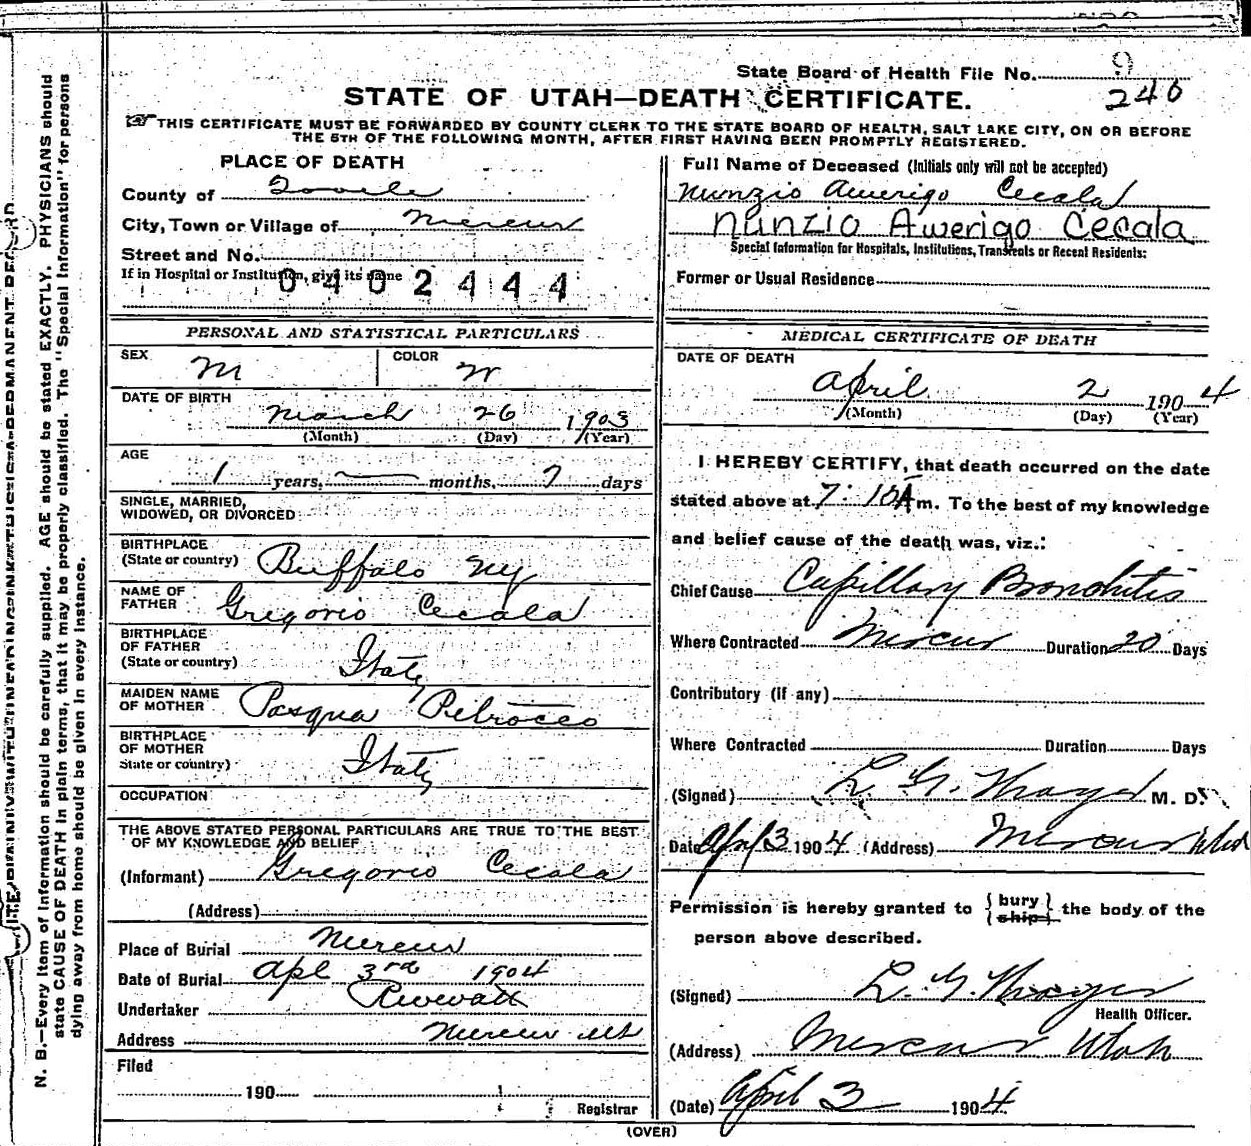 State Board of Health File No. 9
246
STATE OF UTAH—DEATH CERTIFICATE.
THIS CERTIFICATE MUST BE FORWARDED BY COUNTY CLERK TO THE STATE BOARD OF HEALTH, SALT LAKE CITY, ON OR BEFORE
THE 5TH OF THE FOLLOWING MONTH, AFTER FIRST HAVING BEEN PROMPTLY REGISTERED.
PLACE OF DEATH
County of Tooele
City, Town or Village of Mercur
Street and No.
If in Hospital or Institution, give its name
0402444
PERSONAL AND STATISTICAL PARTICULARS
SEX M COLOR W
DATE OF BIRTH
March 26 1903
(Month) (Day) (Year)
AGE
1 years, months, 7 days
SINGLE, MARRIED,
WIDOWED, OR DIVORCED
BIRTHPLACE
(State or country) Buffalo NY
NAME OF
FATHER Gregorio Cecala
BIRTHPLACE
OF FATHER
(State or country) Italy
MAIDEN NAME
OF MOTHER Pasqua Petrocco
BIRTHPLACE
OF MOTHER
State or country) Italy
OCCUPATION
THE ABOVE STATED PERSONAL PARTICULARS ARE TRUE TO THE BEST
OF MY KNOWLEDGE AND BELIEF
(Informant) Gregorio Cecala
(Address)
Place of Burial Mercur
Date of Burial Apl 3rd 1904
Undertaker
Address Mercur Ut
Filed
190
Registrar
Full Name of Deceased (Initials only will not be accepted)
Nunzio Awerigo Cecala
Nunzio Awerigo Cecala
Special Information for Hospitals, Institutions, Transients or Recent Residents:
Former or Usual Residence
MEDICAL CERTIFICATE OF DEATH
DATE OF DEATH
April 2 1904
(Month) (Day) (Year)
I HEREBY CERTIFY, that death occurred on the date
stated above at 7:10 A m. To the best of my knowledge
and belief cause of the death was, viz.:
Chief Cause Capillary Bronchitis
Where Contracted Mercur Duration 20 Days
Contributory (if any)
Where Contracted Duration Days
(Signed) L. G. Thayer M. D.
Date Apl 3 1904 (Address) Mercur Utah
Permission is hereby granted to {bury} {ship} the body of the
person above described.
(Signed) L. G. Thayer
Health Officer.
(Address) Mercur Utah
(Date) April 3 1904
(OVER)
N. B.—Every item of information should be carefully supplied. AGE should be stated EXACTLY. PHYSICIANS should
state CAUSE OF DEATH in plain terms, that it may be properly classified. The "Special Information" for persons
dying away from home should be given in every instance.